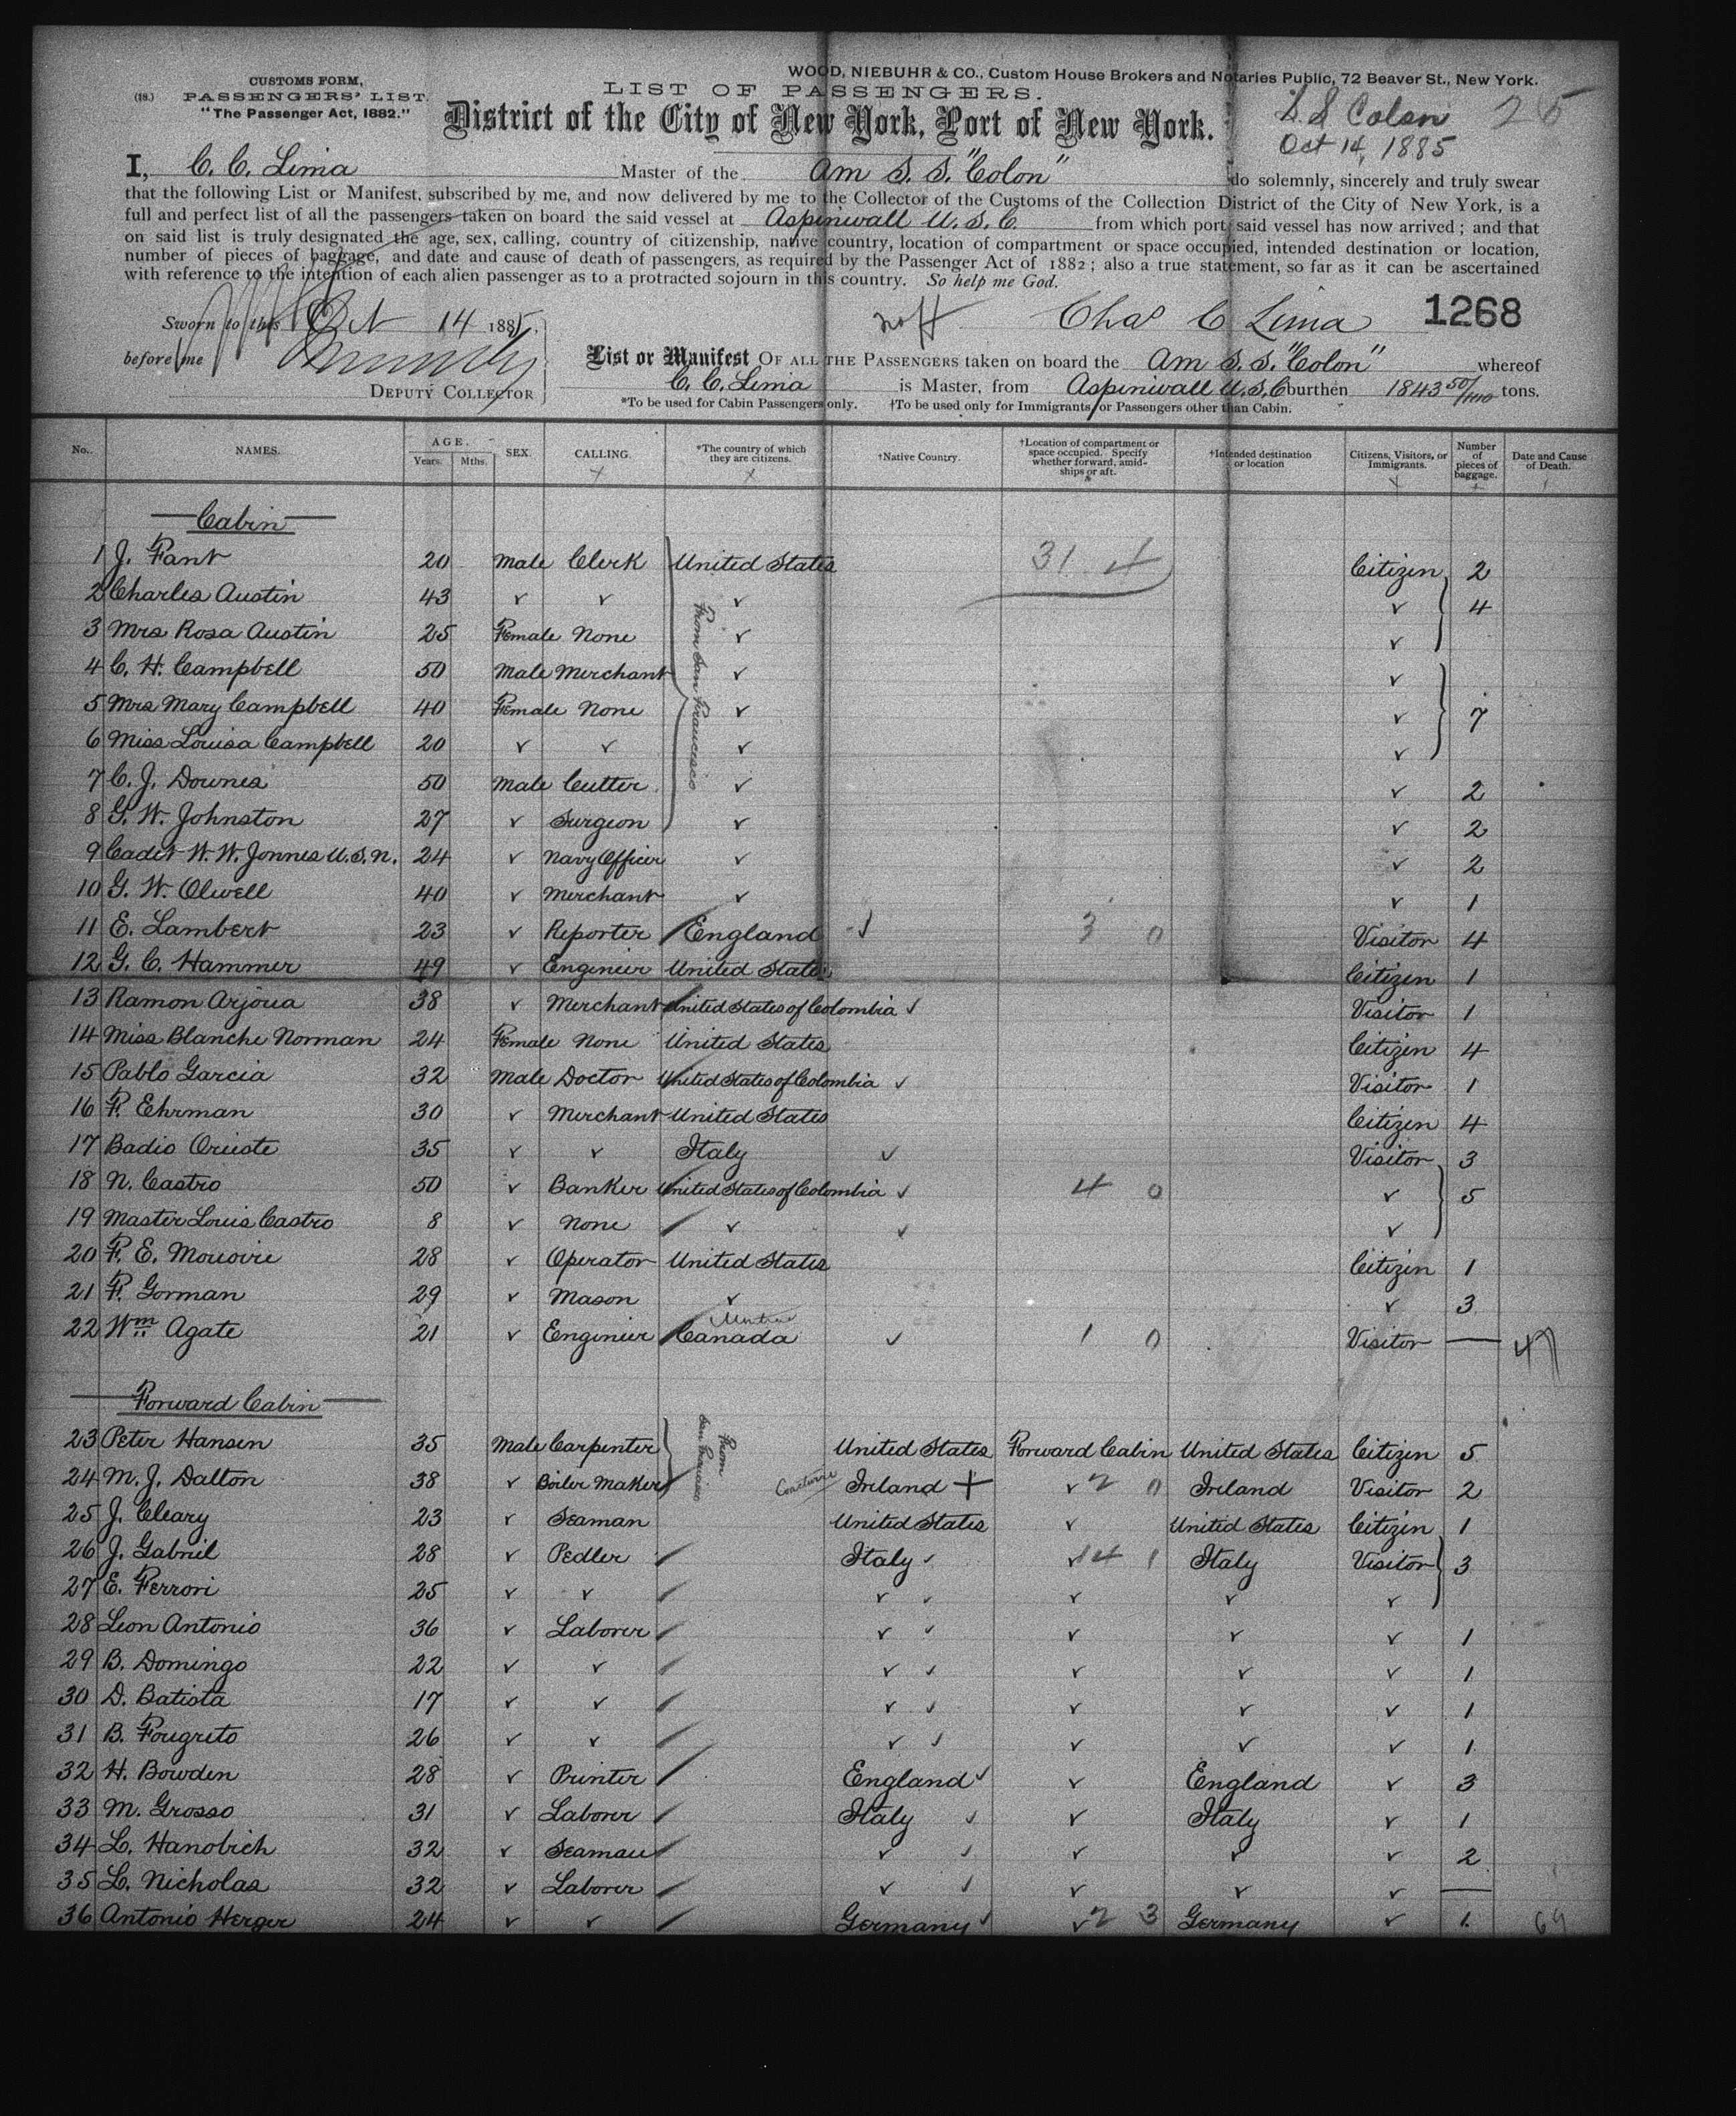 WOOD, NIEBUHR & CO., Custom House Brokers and Notaries Public, 72 Beaver St., New York.
CUSTOMS FORM,
(18.) PASSENGERS' LIST.
"The Passenger Act, 1882."
LIST OF PASSENGERS.
District of the City of New York, Port of New York.
S. S Colon 25
Oct 14, 1885
I, C. C. Lima Master of the Am S. S. "Colon" do solemnly, sincerely and truly swear
that the following List or Manifest, subscribed by me, and now delivered by me to the Collector of the Customs of the Collection District of the City of New York, is a
full and perfect list of all the passengers taken on board the said vessel at Aspinwall U. S. C. from which port said vessel has now arrived; and that
on said list is truly designated the age, sex, calling, country of citizenship, native country, location of compartment or space occupied, intended destination or location,
number of pieces of baggage, and date and cause of death of passengers, as required by the Passenger Act of 1882; also a true statement, so far as it can be ascertained
with reference to the intention of each alien passenger as to a protracted sojourn in this country. So help me God.
Sworn to this Oct 14 1885.
Chas C Lima 1268
before me
DEPUTY COLLECTOR
List or Manifest OF ALL THE PASSENGERS taken on board the Am S. S. "Colon" whereof
C. C. Lima is Master, from Aspinwall U. S. C burthen 1843 50/100 tons.
*To be used for Cabin Passengers only. †To be used only for Immigrants, or Passengers other than Cabin.
No. NAMES. AGE. Years. Mths. SEX. CALLING. *The country of which they are citizens. †Native Country. †Location of compartment or space occupied. Specify whether forward, amidships or aft. †Intended destination or location Citizens, Visitors, or Immigrants. Number of pieces of baggage. Date and Cause of Death.
Cabin
1 J. Fant 20 Male Clerk United States 31 4 Citizen 2
2 Charles Austin 43 ✓ ✓ ✓ ✓ 4
3 Mrs Rosa Austin 25 Female None ✓ ✓
From San Francisco
4 C. H. Campbell 50 Male Merchant ✓ ✓
5 Mrs Mary Campbell 40 Female None ✓ ✓ 7
6 Miss Louisa Campbell 20 ✓ ✓ ✓ ✓
7 C. J. Downes 50 Male Cutter ✓ ✓ 2
8 G. W. Johnston 27 ✓ Surgeon ✓ ✓ 2
9 Cadet W. W. Jonnes U. S. N. 24 ✓ Navy Officer ✓ ✓ 2
10 G. W. Olwell 40 ✓ Merchant ✓ ✓ 1
11 E. Lambert 23 ✓ Reporter England ✓ 3 0 Visitor 4
12 G. C. Hammer 49 ✓ Engineer United States Citizen 1
13 Ramon Arjona 38 ✓ Merchant United States of Colombia ✓ Visitor 1
14 Miss Blanche Norman 24 Female None United States Citizen 4
15 Pablo Garcia 32 Male Doctor United States of Colombia ✓ Visitor 1
16 F. Ehrman 30 ✓ Merchant United States Citizen 4
17 Badio Orieste 35 ✓ ✓ Italy ✓ Visitor 3
18 N. Castro 50 ✓ Banker United States of Colombia ✓ 4 0 ✓ 5
19 Master Louis Castro 8 ✓ None ✓ ✓ ✓
20 F. E. 28 ✓ Operator United States Citizen 1
21 F. Gorman 29 ✓ Mason ✓ ✓ 3
22 Wm Agate 21 ✓ Engineer Canada ✓ 1 0 Visitor —
Forward Cabin
23 Peter Hansen 35 Male Carpenter United States Forward Cabin United States Citizen 5
From San Francisco
24 M. J. Dalton 38 ✓ Boiler Maker Ireland + ✓ 2 0 Ireland Visitor 2
25 J. Cleary 23 ✓ Seaman United States ✓ United States Citizen 1
26 J. Gabriel 28 ✓ Pedler Italy ✓ ✓ 14 1 Italy Visitor 3
27 E. Ferrori 25 ✓ ✓ ✓ ✓ ✓ ✓ ✓
28 Leon Antonio 36 ✓ Laborer ✓ ✓ ✓ ✓ ✓ 1
29 B. Domingo 22 ✓ ✓ ✓ ✓ ✓ ✓ ✓ 1
30 D. Batista 17 ✓ ✓ ✓ ✓ ✓ ✓ ✓ 1
31 B. Fougrito 26 ✓ ✓ ✓ ✓ ✓ ✓ ✓ 1
32 H. Bowden 28 ✓ Printer England ✓ ✓ England ✓ 3
33 M. Grosso 31 ✓ Laborer Italy ✓ ✓ Italy ✓ 1
34 L. Hanobich 32 ✓ Seaman ✓ ✓ ✓ ✓ ✓ 2
35 L. Nicholas 32 ✓ Laborer ✓ ✓ ✓ ✓ ✓ —
36 Antonio Herger 24 ✓ ✓ Germany ✓ ✓ 2 3 Germany ✓ 1